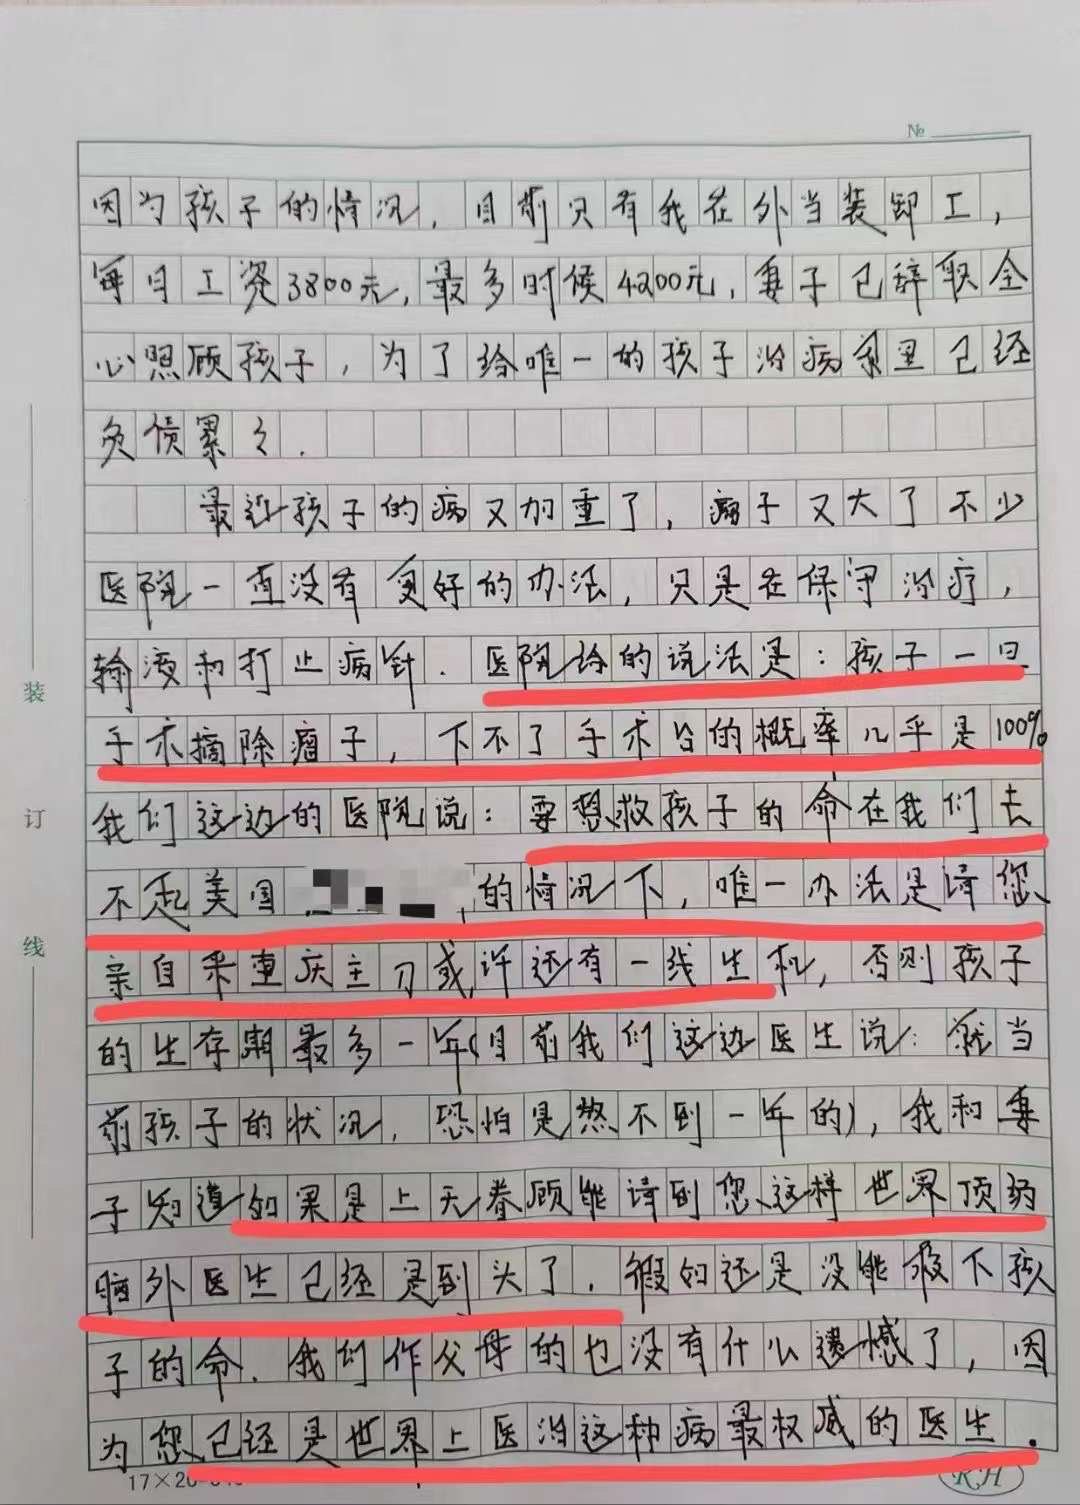 №
因为孩子的情况，目前只有我在外当装卸工，
每月工资3800元，最多时候4200元，妻子已辞职全
心照顾孩子，为了给唯一的孩子治病家里已经
负债累々.
最近孩子的病又加重了，瘤子又大了不少
医院一直没有更好的办法，只是在保守治疗，
输液和打止病针.医院给的说法是：孩子一旦
手术摘除瘤子，下不了手术台的概率几乎是100%
我们这边的医院说：要想救孩子的命在我们去
不起美国的情况下，唯一办法是请您
亲自来重庆主刀或许还有一线生机，否则孩子
的生存期最多一年(目前我们这边医生说：就当
前孩子的状况，恐怕是熬不到一年的)，我和妻
子知道如果是上天眷顾能请到您这样世界顶级
脑外医生已经是到头了，假如还是没能救下孩
子的命.我们作父母的也没有什么遗憾了，因
为您已经是世界上医治这种病最权威的医生.
装
订
线
17×20
RH